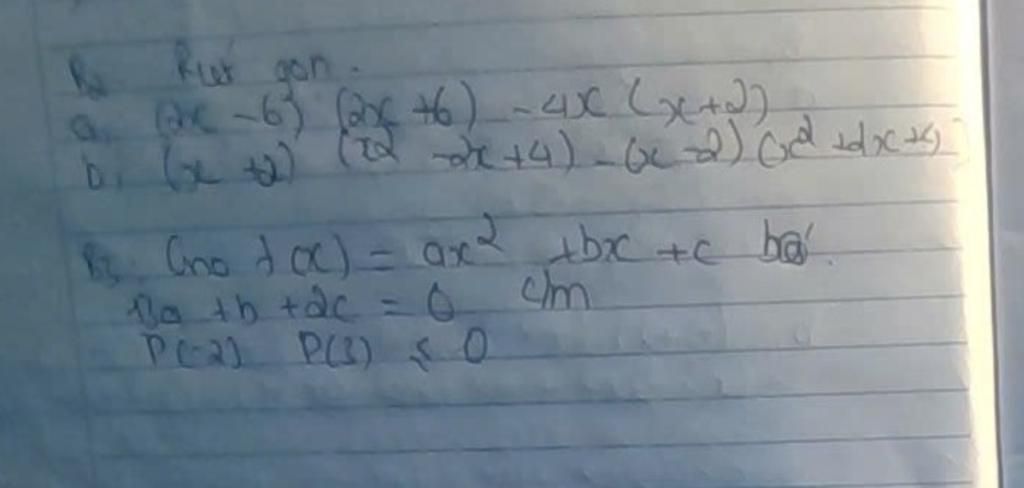 B2 Rút gọn.
a, (2x - 6) (2x + 6) - 4x (x + 2)
b, (x + 2) (x2 - 2x + 4) - (x - 2) (x² + 2x + 4)
B3. Cho f (x) = ax² + bx + c
13a + b + 2c = 0 c/m
P(-2) P(3) ≤ 0